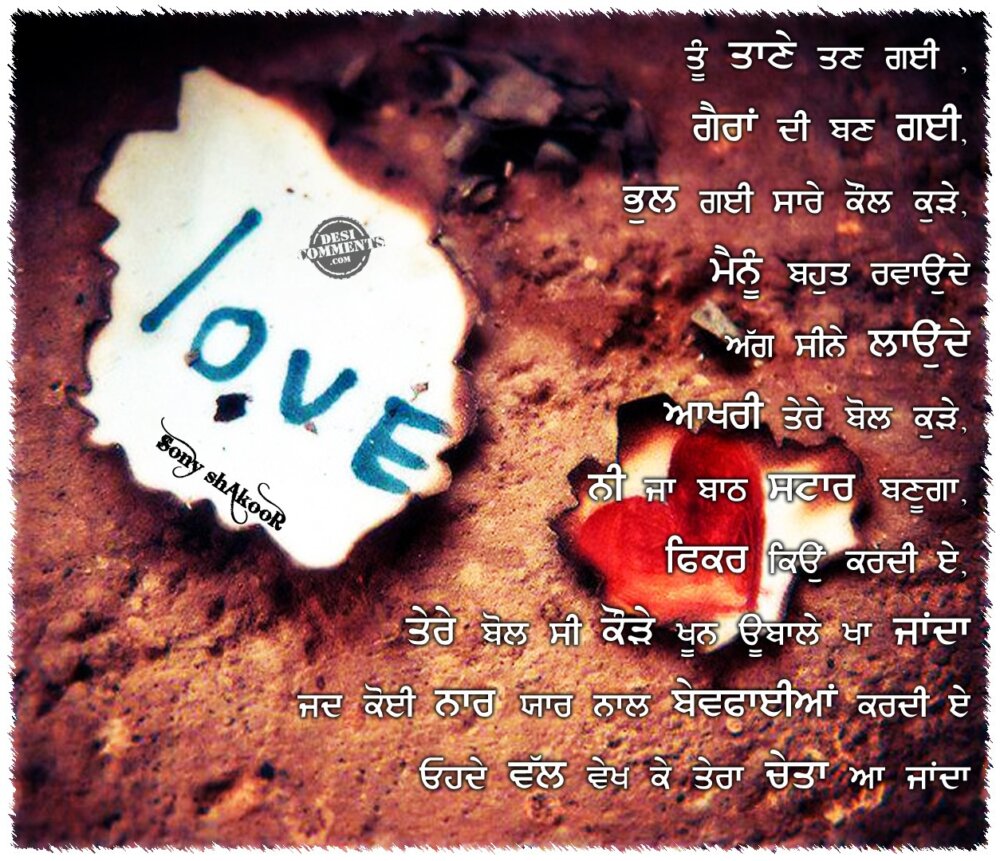 ਤੂੰ ਤਾਣੇ ਤਣ ਗਈ ,
ਗੈਰਾਂ ਦੀ ਬਣ ਗਈ,
ਭੁਲ ਗਈ ਸਾਰੇ ਕੌਲ ਕੁੜੇ,
ਮੈਨੂੰ ਬਹੁਤ ਰਵਾਉਂਦੇ
ਅੱਗ ਸੀਨੇ ਲਾਉਂਦੇ
ਆਖਰੀ ਤੇਰੇ ਬੋਲ ਕੁੜੇ,
ਨੀ ਜਾ ਬਾਠ ਸਟਾਰ ਬਣੂਗਾ,
ਫਿਕਰ ਕਿਉਂ ਕਰਦੀ ਏ,
ਤੇਰੇ ਬੋਲ ਸੀ ਕੌੜੇ ਖੂਨ ਊਬਾਲੇ ਖਾ ਜਾਂਦਾ
ਜਦ ਕੋਈ ਨਾਰ ਯਾਰ ਨਾਲ ਬੇਵਫਾਈਆਂ ਕਰਦੀ ਏ
ਓਹਦੇ ਵੱਲ ਵੇਖ ਕੇ ਤੇਰਾ ਚੇਤਾ ਆ ਜਾਂਦਾ
love
DESI
COMMENTS
.COM
Sony shAkooR